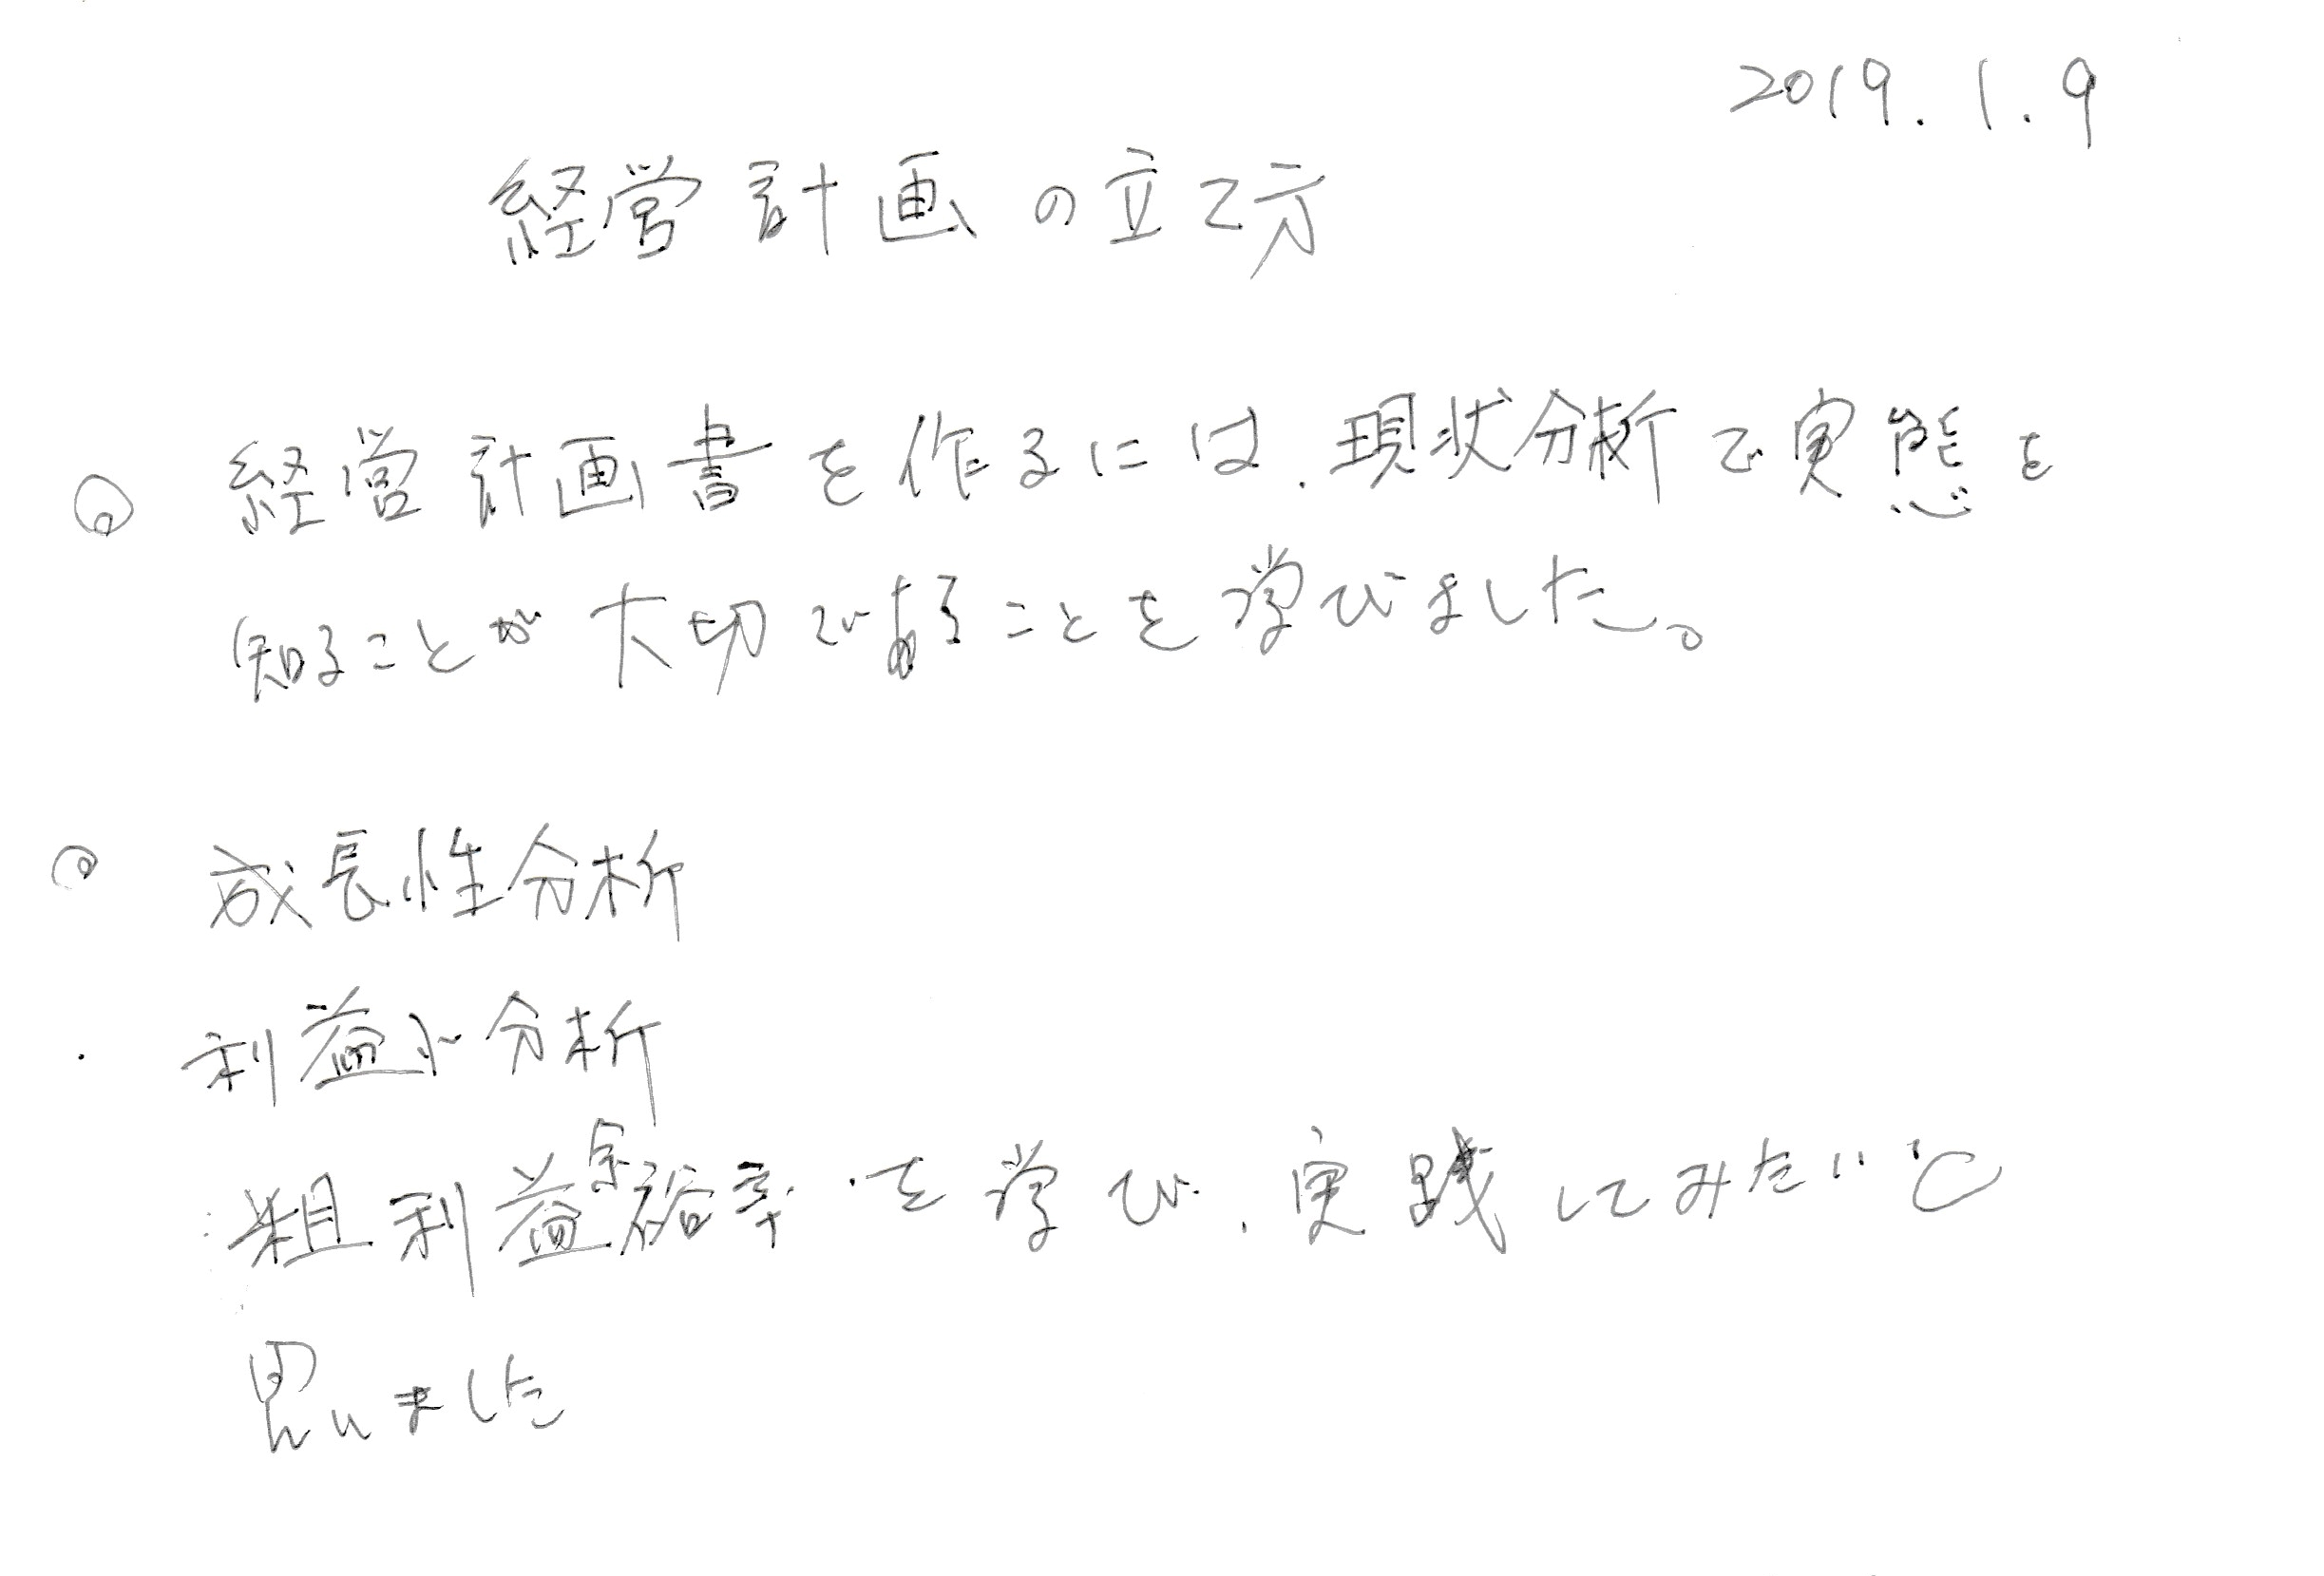 2019.1.9
経営計画の立て方
◎ 経営計画書を作るには、現状分析で実態を
知ることが大切であることを学びました。
◎ 成長性分析
・ 利益小分析
粗利益余裕率を学び、実践してみたいと
思いました